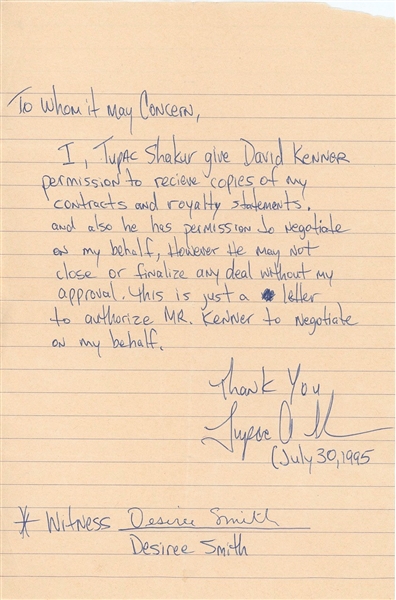 To Whom it May Concern,
I, Tupac Shakur give David Kenner
permission to recieve copies of my
contracts and royalty statements.
and also he has permission to negotiate
on my behalf, However He may not
close or finalize any deal without my
approval. This is just a letter
to authorize MR. Kenner to negotiate
on my behalf.
Thank You
Tupac A S
July 30, 1995
* Witness Desiree Smith
Desiree Smith